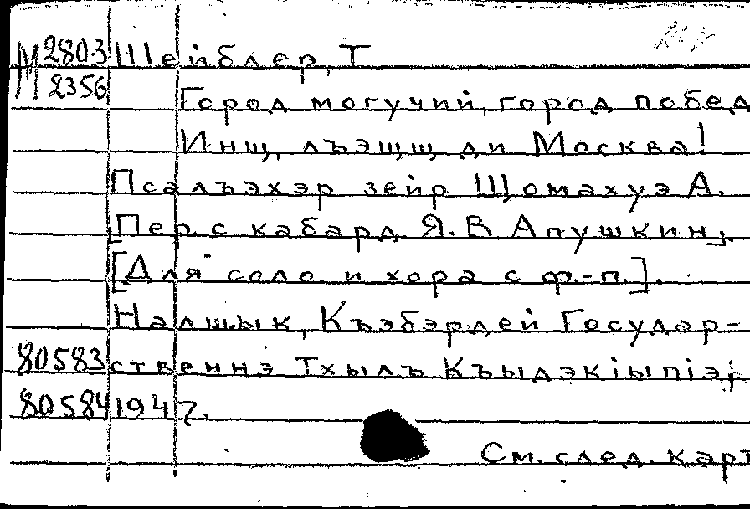 М 2803 Шейблер, Т
М 2356
Город могучий, город побед
Инщ, лъэщщ ди Москва!
Псалъэхэр зейр Щомахуэ А.
Пер. с кабард. Я. В. Апушкин,
[Для соло и хора с ф.-п.].
Налшык, Къэбэрдей Государ-
80583 ственнэ Тхылъ Къыдэкӏыпӏэ,
80584 1947.
См. след. карт